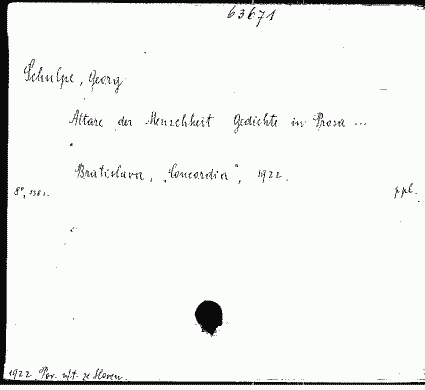 63671
Schulpe, Georg
Altare der Menschheit Gedichte in Prosa ...
Bratislava, „Concordia", 1922.
8°, s. ppl.
1922 Pov. ze Sloven.